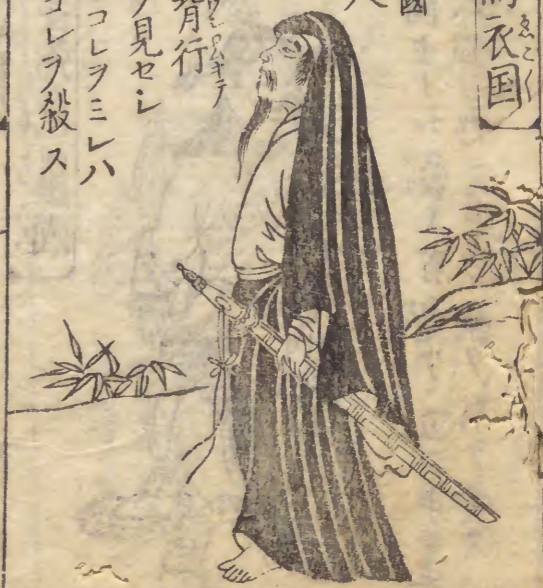 衣国
國
人
背行
ノ見セシ
コレヲミレハ
コレヲ殺ス